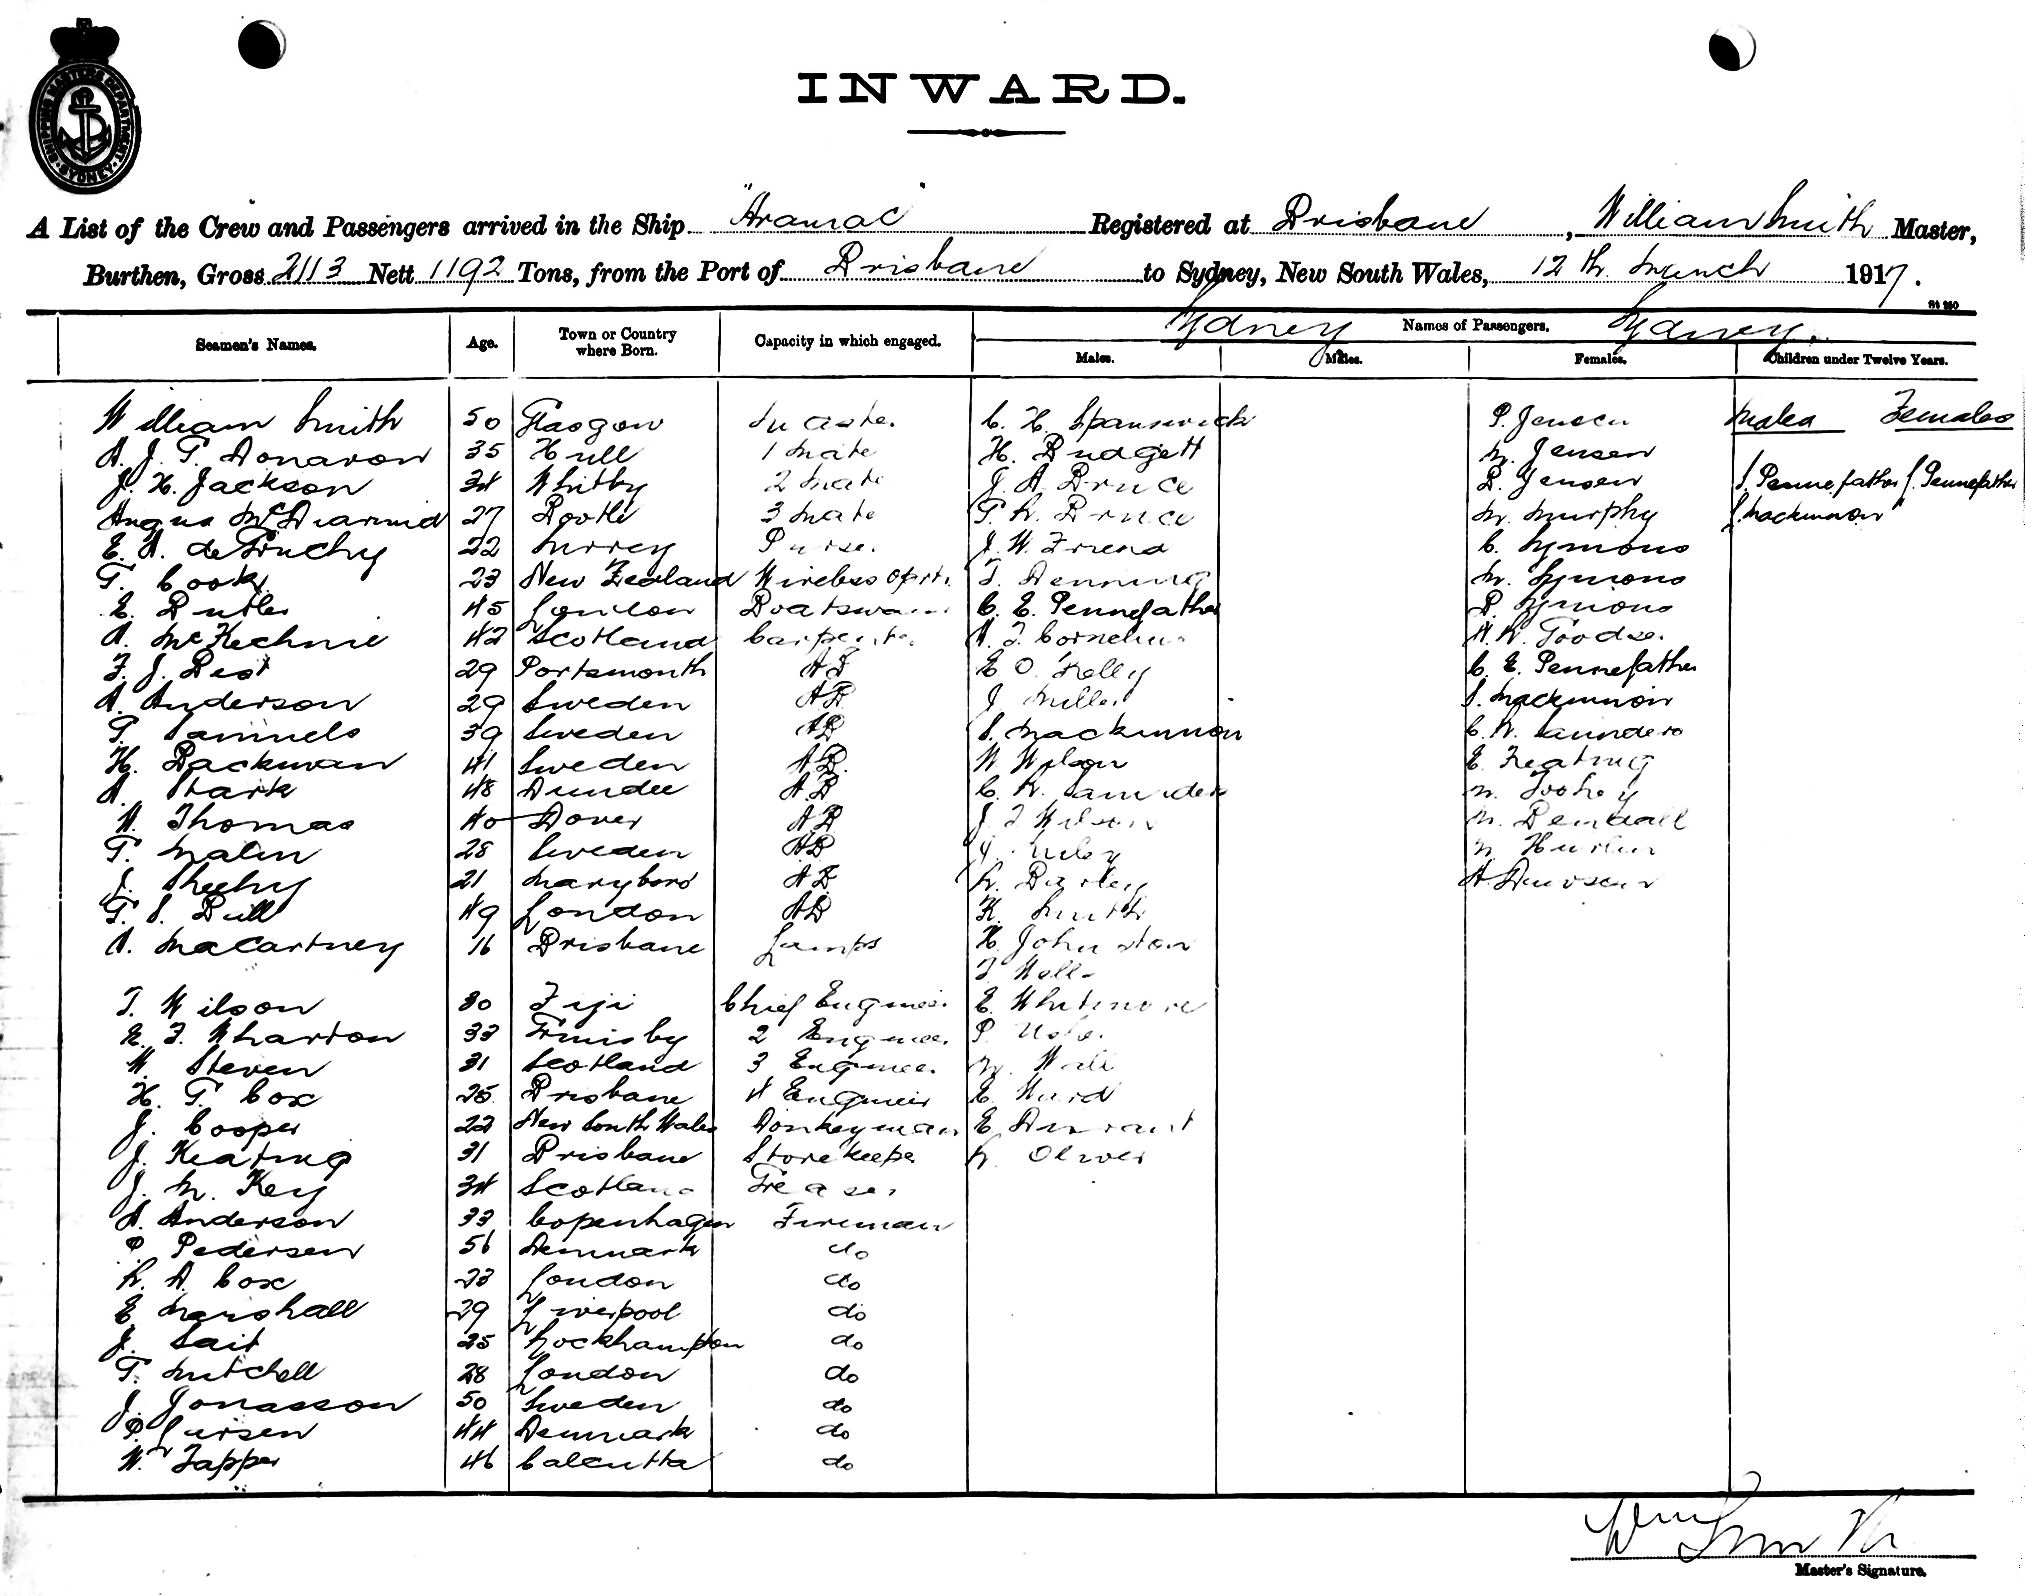 SHIPPING MASTERS DEPARTMENT SYDNEY
INWARD.
A List of the Crew and Passengers arrived in the Ship "Aramac" Registered at Brisbane, William Smith Master,
Burthen, Gross 2113 Nett 1192 Tons, from the Port of Brisbane to Sydney, New South Wales, 12th March 1917.
Sydney Names of Passengers. Sydney
Seamen's Names. Age. Town or Country where Born. Capacity in which engaged. Males. Males. Females. Children under Twelve Years.
William Smith 50 Glasgow Master C. H. Spanswick P. Jensen Males Females
A. J. G. Donavon 35 Hull 1 Mate H. Budgett M. Jensen
J. H. Jackson 34 Whitby 2 Mate J. A. Bruce B. Jensen S. Pennefather J. Pennefather
Angus McDiarmid 27 Bootle 3 Mate G. R. Bruce M. Murphy J. Mackinnon
E. A. de Gruchy 22 Surrey Purser J. W. Friend C. Symons
G. Cook 23 New Zealand Wireless Optr. T. Denning M. Symons
E. Butler 45 London Boatswain C. E. Pennefather B. Symons
A. McKechnie 42 Scotland Carpenter A. T. Cornelius A. R. Goodser
F. J. Best 29 Portsmouth AB E O'Kelly C. E. Pennefather
A. Anderson 29 Sweden AB J. Miller S. Mackinnon
G. Samuels 39 Sweden AB S. Mackinnon C. R. Saunders
H. Backman 41 Sweden AB W. Wilson E. Keating
A. Stark 48 Dundee AB C. R. Saunders M. Toohey
A. Thomas 40 Dover AB J. T. Wilson M. Bendall
G. Malin 28 Sweden AB Riley
J. Sheehy 21 Maryboro AB R. Barley A. Dawson
G. S. Bull 49 London AB K. Smith
A. MacCartney 16 Brisbane Lamps H. Johnston
T
T. Wilson 30 Fiji Chief Engineer E. Whitmore
E. F. Wharton 33 Grimsby 2 Engineer P.
W. Steven 31 Scotland 3 Engineer M. Wall
H. G. Cox 25 Brisbane 4 Engineer E. Ward
J. Cooper 22 New South Wales Donkeyman E. Durant
J. Keating 31 Brisbane Storekeeper R. Oliver
J. M. Key 34 Scotland Greaser
A. Anderson 33 Copenhagen Fireman
P. Pedersen 56 Denmark do
R. A. Cox 23 London do
E. Marshall 29 Liverpool do
J. Sait 25 Rockhampton do
G. Mitchell 28 London do
J. Jonasson 50 Sweden do
P. Jursen 44 Denmark do
W. Tapper 46 Calcutta do
Wm Smith
Master's Signature.